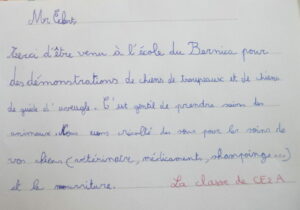 Mr Erbert
Merci d'être venu à l'école du Bernica pour
des démonstrations de chiens de troupeaux et de chiens
de guide d'aveugle. C'est gentil de prendre soins des
animaux. Nous avons récolté des sous pour les soins de
vos chiens (vétérinaire, médicaments, shampoings...)
et la nourriture. La classe de CE2 A